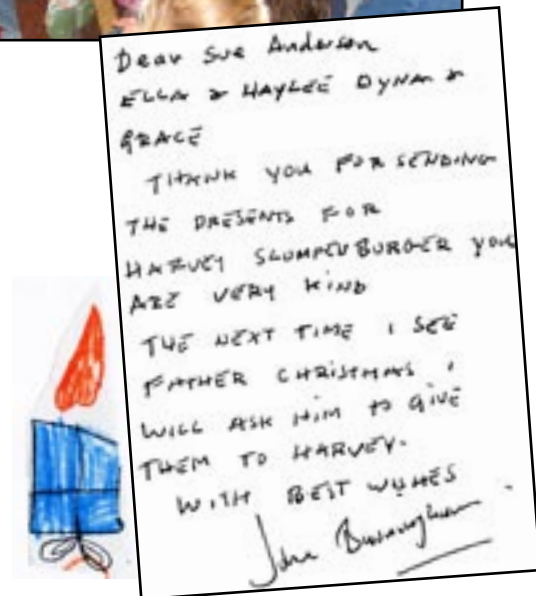 Dear Sue Anderson
ELLA & HAYLEE DYNAN &
GRACE
THANK YOU FOR SENDING
THE PRESENTS FOR
HARVEY SLUMFENBURGER YOU
ARE VERY KIND
THE NEXT TIME I SEE
FATHER CHRISTMAS I
WILL ASK HIM TO GIVE
THEM TO HARVEY.
WITH BEST WISHES
John Burningham